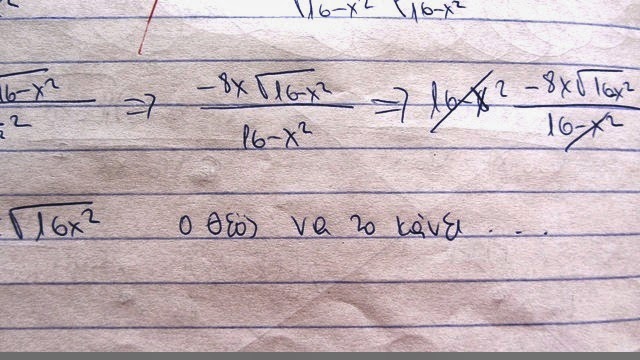 √16-x² √16-x²
16-x² ⇒ -8x√16-x² / 16-x² ⇒ 16-x² -8x√16x² / 16-x²
√16x² Ο θεός να το κάνει . . .